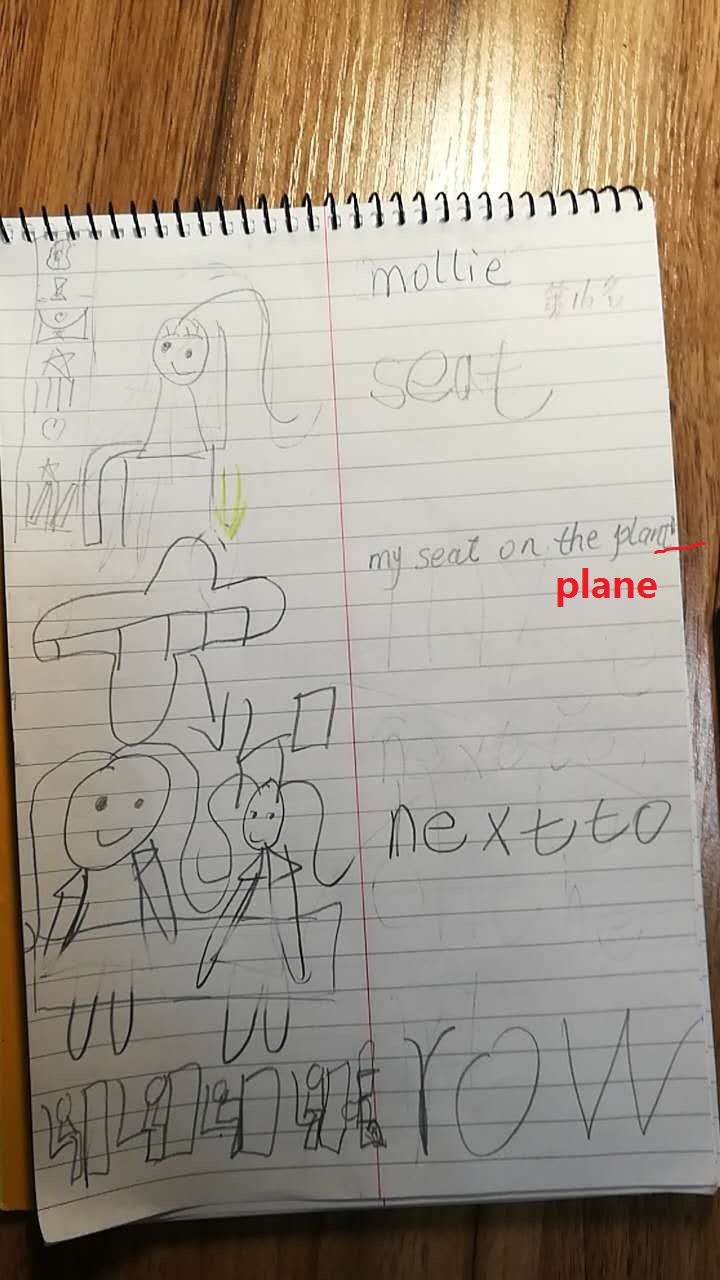 mollie
第16名
seat
my seat on the plant
plane
next to
row